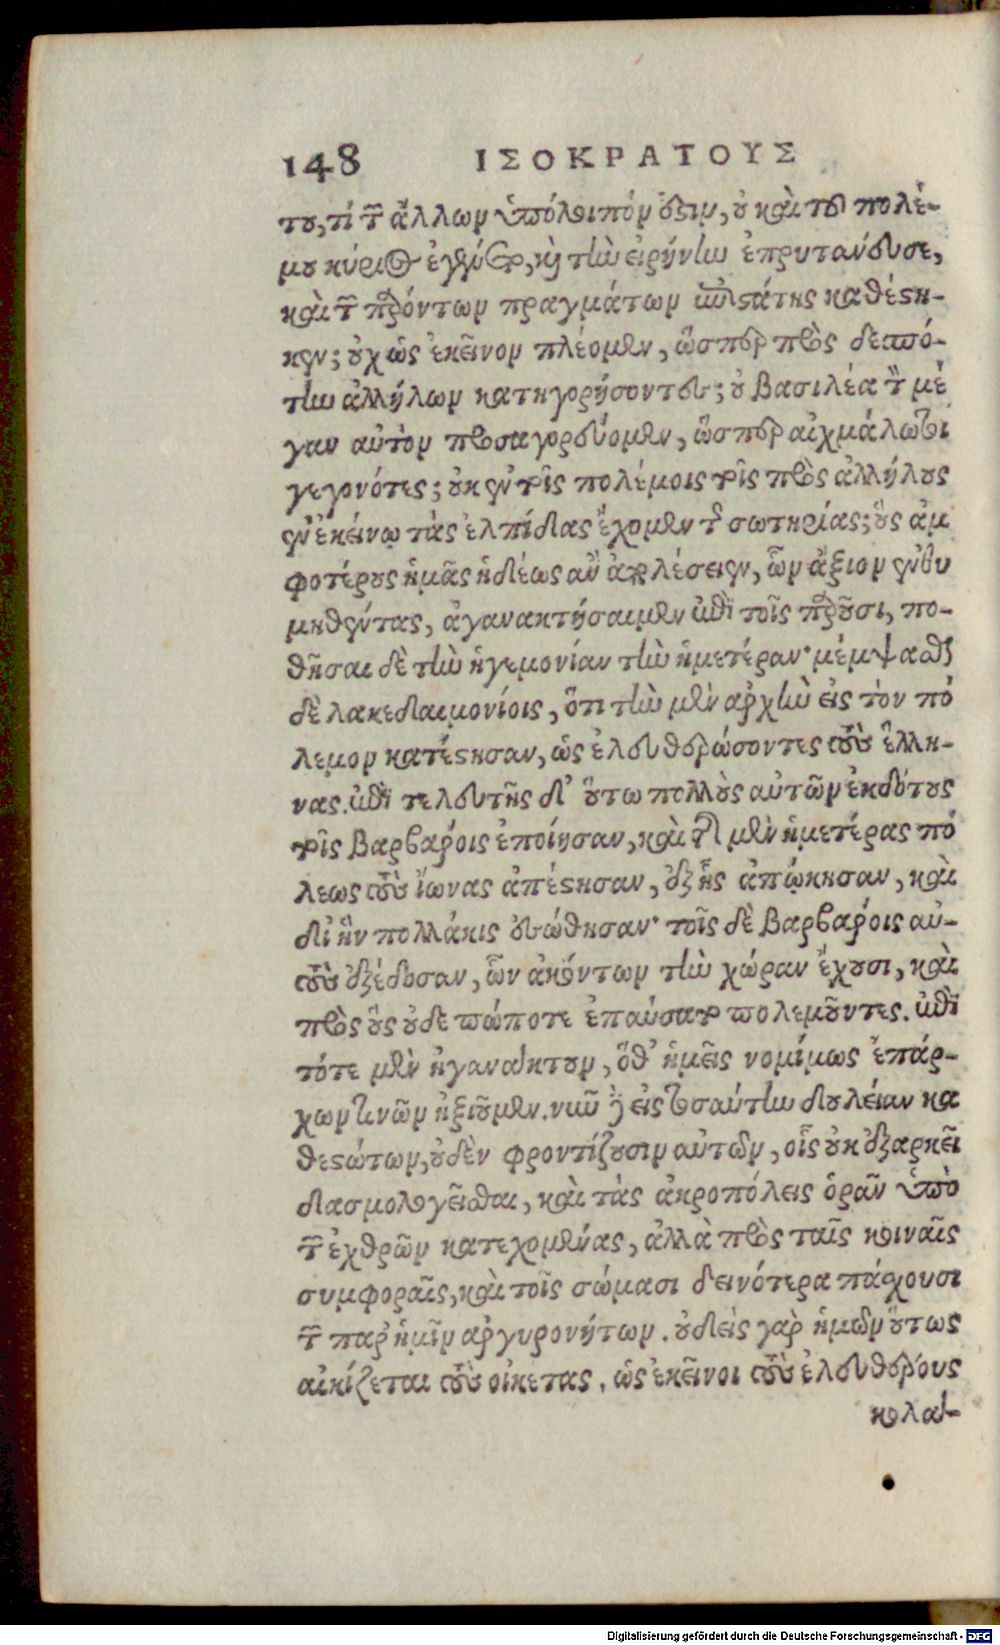 148 ΙΣΟΚΡΑΤΟΥΣ
του, τί τῶν ἄλλων ὑπόλοιπόν ἐστιν, οὐ καὶ τοῦ πολέ-
μου κύριος ἐγένετο, καὶ τὴν εἰρήνην ἐπρυτάνευσε,
καὶ τῶν παρόντων πραγμάτων ἐπιστάτης καθέστη-
κεν; οὐχ ὡς ἐκεῖνον πλέομεν, ὥσπερ πρὸς δεσπό-
την ἀλλήλων κατηγορήσοντες; οὐ βασιλέα τὸν μέ
γαν αὐτὸν προσαγορεύομεν, ὥσπερ αἰχμάλωτοι
γεγονότες; οὐκ ἐν τοῖς πολέμοις τοῖς πρὸς ἀλλήλους
ἐν ἐκείνῳ τὰς ἐλπίδας ἔχομεν τῆς σωτηρίας; ὃς ἀμ
φοτέρους ἡμᾶς ἡδέως ἂν ἀπολέσειεν, ὧν ἄξιον ἐνθυ
μηθέντας, ἀγανακτήσαι μὲν ἐπὶ τοῖς παροῦσι, πο-
θῆσαι δὲ τὴν ἡγεμονίαν τὴν ἡμετέραν· μέμψασθαι
δὲ λακεδαιμονίοις, ὅτι τὴν μὲν ἀρχὴν εἰς τὸν πό
λεμον κατέστησαν, ὡς ἐλευθερώσοντες τοὺς ἕλλη-
νας. ἐπὶ τελευτῆς δ' οὕτω πολλοὺς αὐτῶν ἐκδότους
τοῖς βαρβάροις ἐποίησαν, καὶ τῆς μὲν ἡμετέρας πό
λεως τοὺς ἴωνας ἀπέστησαν, ἐξ ἧς ἀπῴκησαν, καὶ
δι' ἣν πολλάκις ἐσώθησαν· τοῖς δὲ βαρβάροις αὐ-
τοὺς ἐξέδοσαν, ὧν ἀκόντων τὴν χώραν ἔχουσι, καὶ
πρὸς οὓς οὐδε πώποτε ἐπαύσαντο πολεμοῦντες. ἐπὶ
τότε μὲν ἠγανάκτουν, ὅθ' ἡμεῖς νομίμως ἐπάρ-
χων τινῶν ἠξιοῦμεν. νῦν δὲ εἰς τοσαύτην δουλείαν κα
θεστώτων, οὐδὲν φροντίζουσιν αὐτῶν, οἷς οὐκ ἐξαρκεῖ
δασμολογεῖσθαι, καὶ τὰς ἀκροπόλεις ὁρᾶν ὑπὸ
τῶν ἐχθρῶν κατεχομένας, ἀλλὰ πρὸς ταῖς κοιναῖς
συμφοραῖς, καὶ τοῖς σώμασι δεινότερα πάσχουσι
τῶν παρ' ἡμῖν ἀργυρονήτων. οὐδεὶς γὰρ ἡμῶν οὕτως
αἰκίζεται τοὺς οἰκέτας, ὡς ἐκεῖνοι τοὺς ἐλευθέρους
κολά-
Digitalisierung gefördert durch die Deutsche Forschungsgemeinschaft - DFG